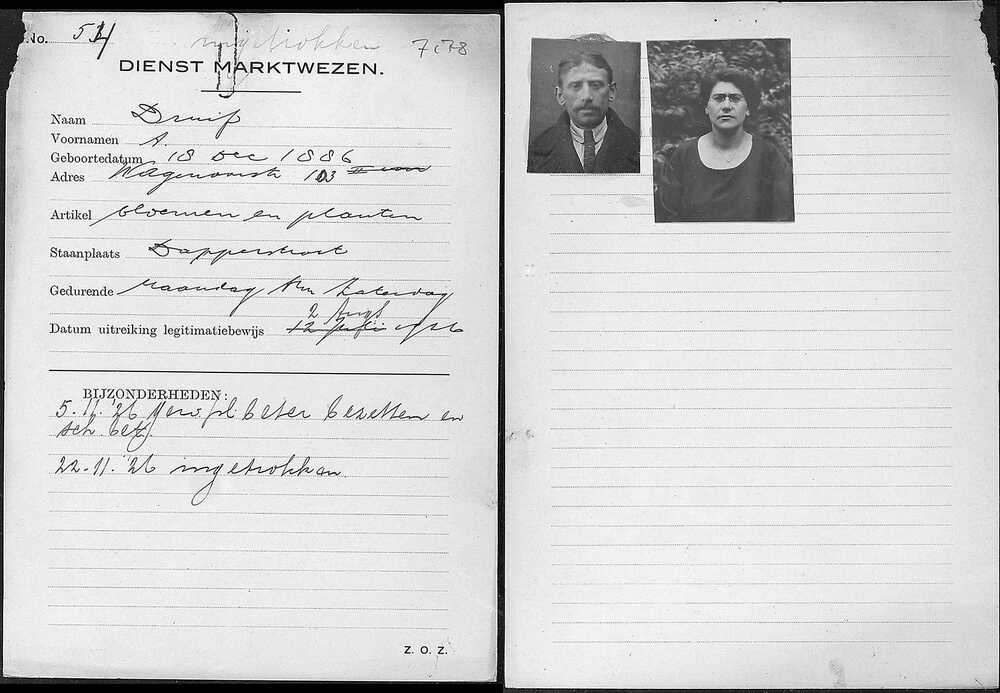 No. 514
ingetrokken 7.78
DIENST MARKTWEZEN.
Naam Druif
Voornamen A.
Geboortedatum 18 Dec 1886
Adres Wagenaarstr 103
Artikel bloemen en planten
Staanplaats Dapperstraat
Gedurende Maandag t/m Zaterdag
2 Augs
Datum uitreiking legitimatiebewijs 12 Juli 1926
BIJZONDERHEDEN:
5.11.'26 Verg. pl. beter bezetten en
sch. bet.
22.11.'26 ingetrokken.
Z. O. Z.